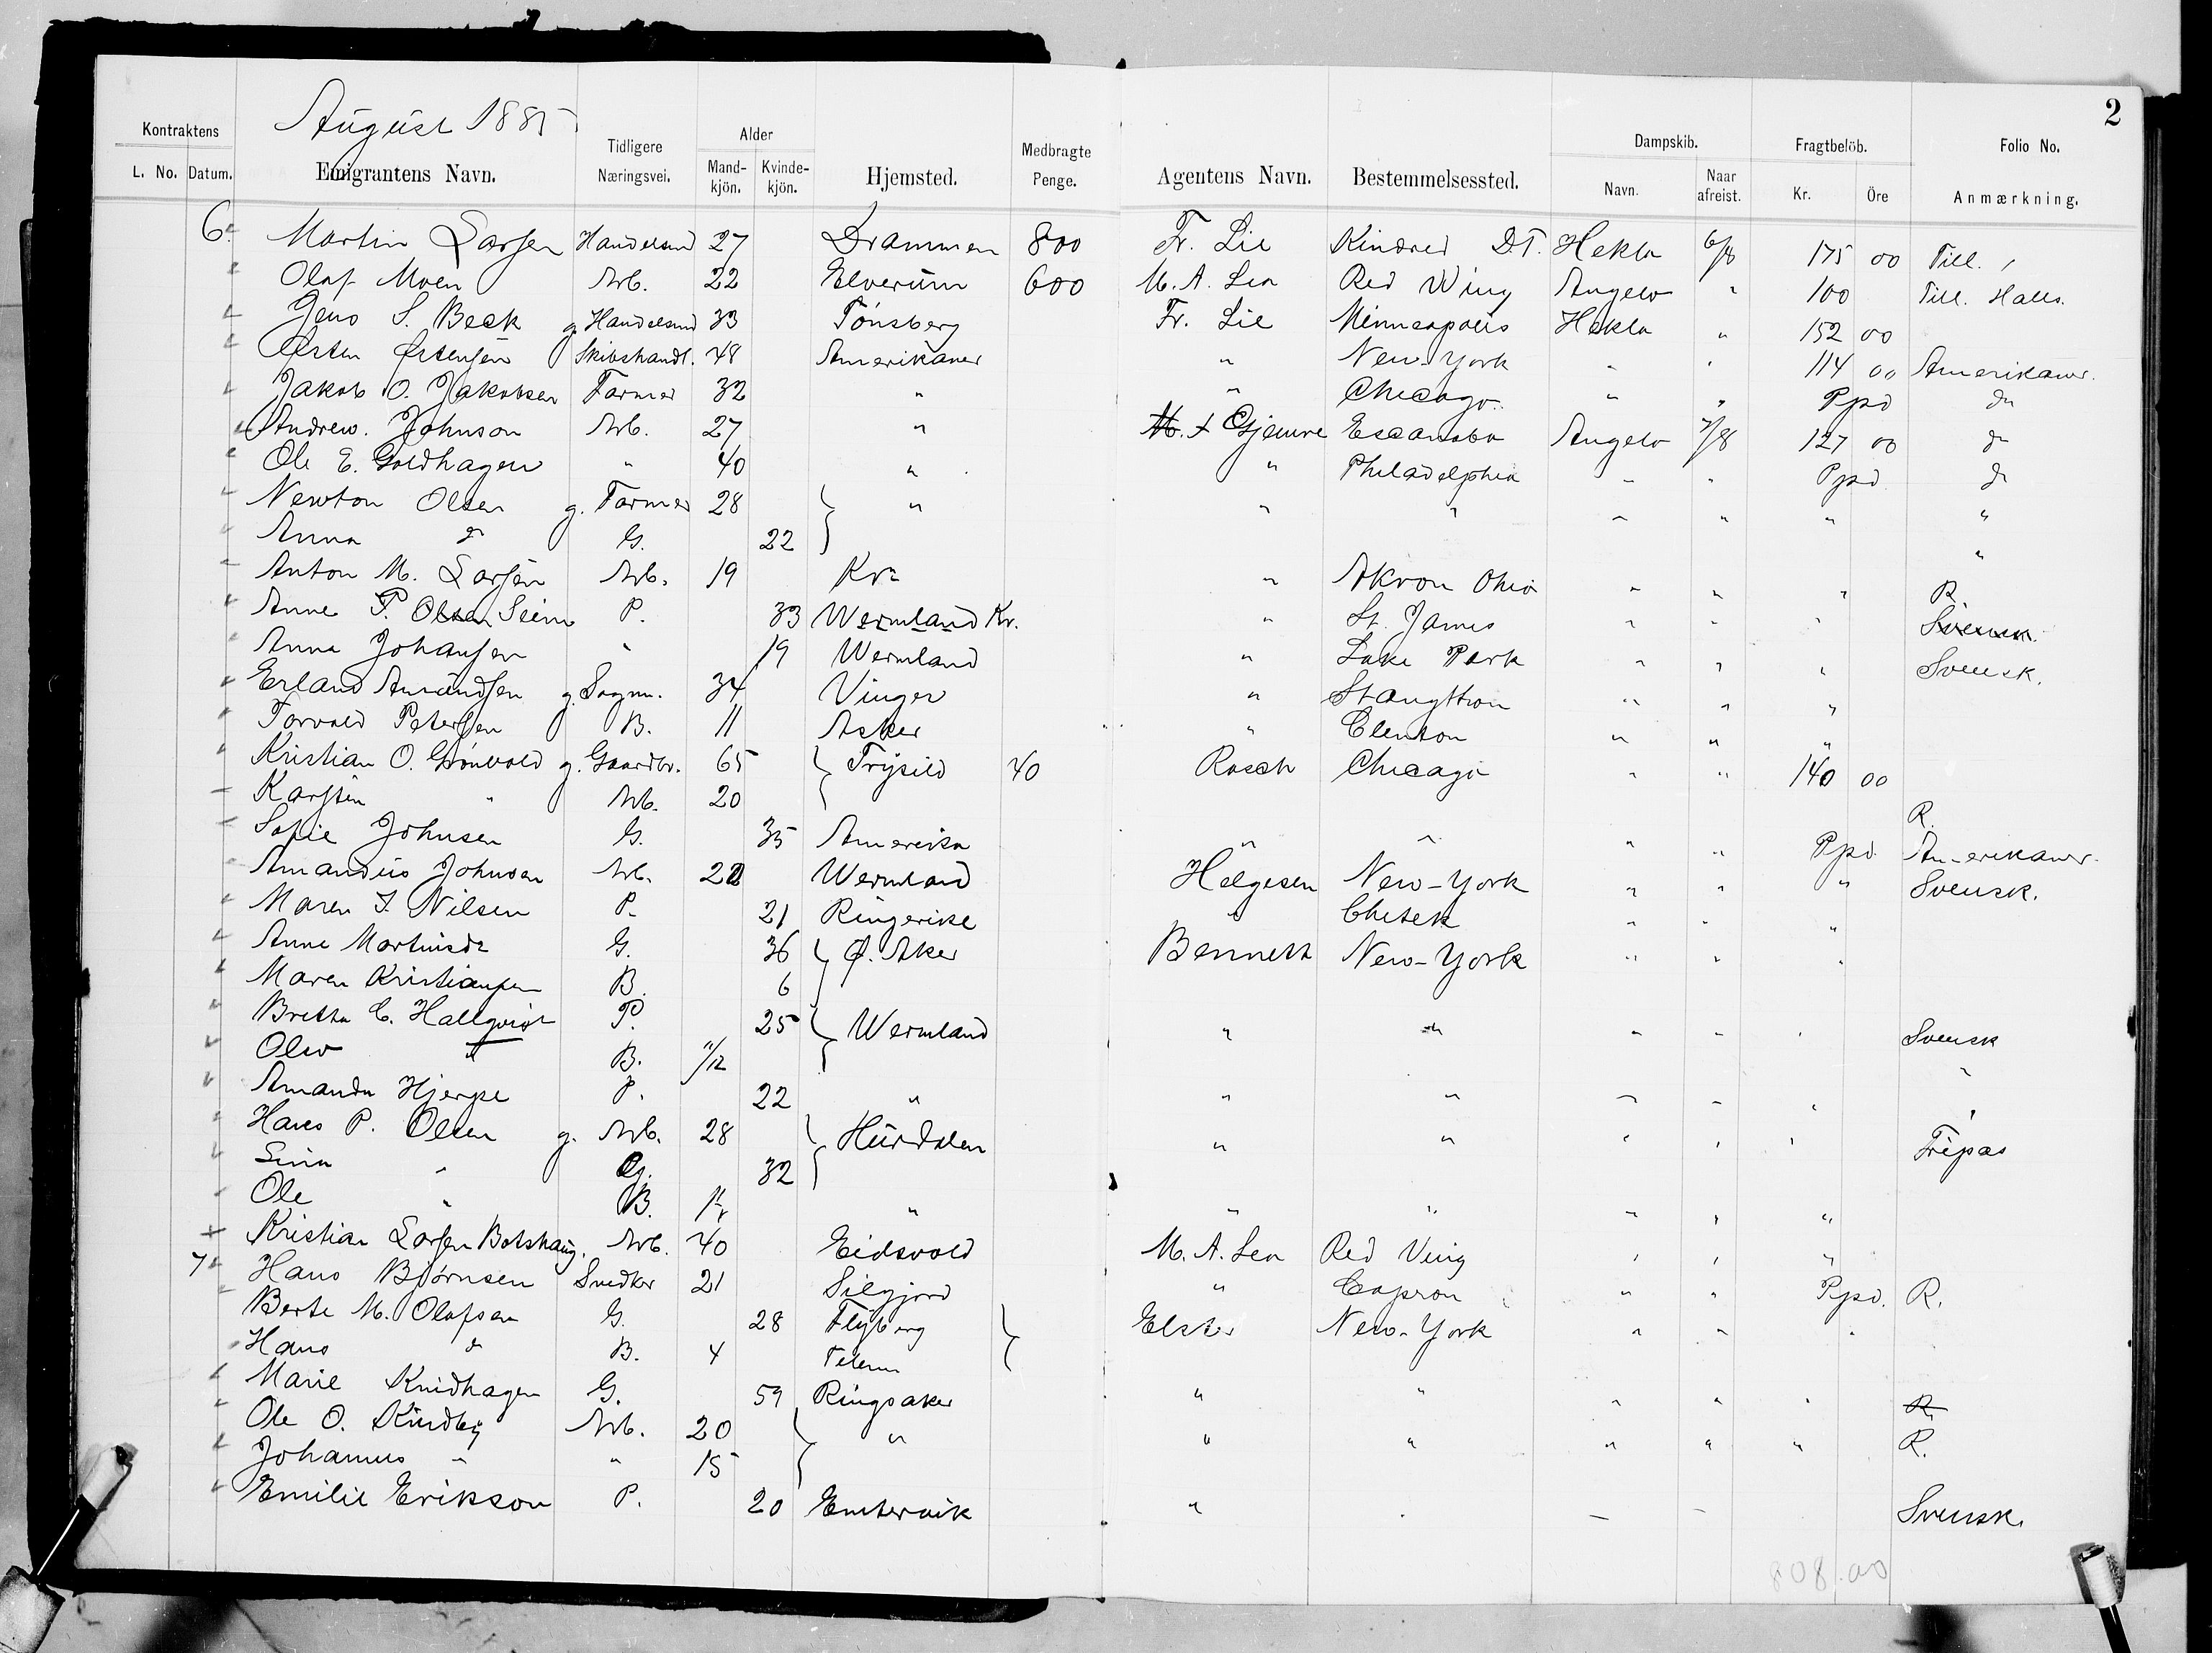 2
August 1885
Kontraktens Emigrantens Navn. Tidligere Næringsvei. Alder Hjemsted. Medbragte Penge. Agentens Navn. Bestemmelsessted. Dampskib. Fragtbelöb. Folio No.
L. No. Datum. Mand-kjön. Kvinde-kjön. Navn. Naar afreist. Kr. Öre Anmærkning.
6. Martin Larsen Handelsmd 27 Drammen 800 Fr. Lie Kindred D.T. Hekla 6/8 175 00 Till.
" Olaf Moen Arb. 22 Elverum 600 M. A. Lea Red Wing Angelo " 100 Till. Halls.
" Jens S. Beck g. Handelsmd 33 Tönsberg Fr. Lie Minneapolis Hekla " 152 00
" Østen Østensen Skibshandl. 48 Amerikaner " New-York " " 114 00 Amerikaner.
" Jakob O. Jakobsen Farmer 32 " " Chicago " " Ppd do
" Andrew. Johnson Arb. 27 " Gjemre Escanaba Angelo 7/8 127 00 do
" Ole E. Goldhagen " 40 " " Philadelphia " " Ppd do
" Newton Olsen g. Farmer 28 " " " " " " "
" Anna do G. 22 "
" Anton M. Larsen Arb. 19 Kra " Akron Ohio " " " R.
" Anne P. Olsen Seim P. 33 Wermland Kr. " St. James " " " Svensk.
" Anna Johansen " 19 Wermland " Lake Park " " " Svensk.
" Erland Amundsen g. Sagm. 34 Vinger " Staughton " " "
" Torvald Petersen B. 11 Asker " Clenton " " "
" Kristian O. Grönvold g. Gaardbr. 65 Trysild 40 Rasch Chicago " " 140 00
" Karsten " Arb. 20 R.
" Sofie Johnsen G. 35 Amerika " " " " Ppd. Amerikaner.
" Amandus Johnsen Arb. 22 Wermland Helgesen New-York " " " Svensk.
" Maren J. Nilsen P. 21 Ringerike " Chetek " " "
" Anne Martinsdr G. 36 Ø. Aker Bennett New-York " " "
" Maren Kristiansen B. 6
" Bretta C. Hallqvist P. 25 Wermland " " " " " Svensk
" Olev " B. 11/12 "
" Amanda Hjerpe P. 22 " " " " " " "
" Hans P. Olsen g. Arb. 28 Hurdalen " " " " " Fripas
" Sina " G. 32
" Ole " B. " " " " " "
+ Kristian Larsen Botshaug. Arb. 40 Eidsvold M. A. Lea Red Ving " " "
7 " Hans Bjørnsen Snedker 21 Silgjord " Capron " " Ppd. R.
" Berte M. Olafsen G. 28 Flyberg Elster New-York " " "
" Hans do B. 4
" Marie Knidhagen G. 59 Ringsaker " " " " " R.
" Ole O. Kindby Arb. 20 " " " " " " R.
" Johannes " " 15
" Emilie Erikson P. 20 Emtervik " " " " Svensk.
808.00